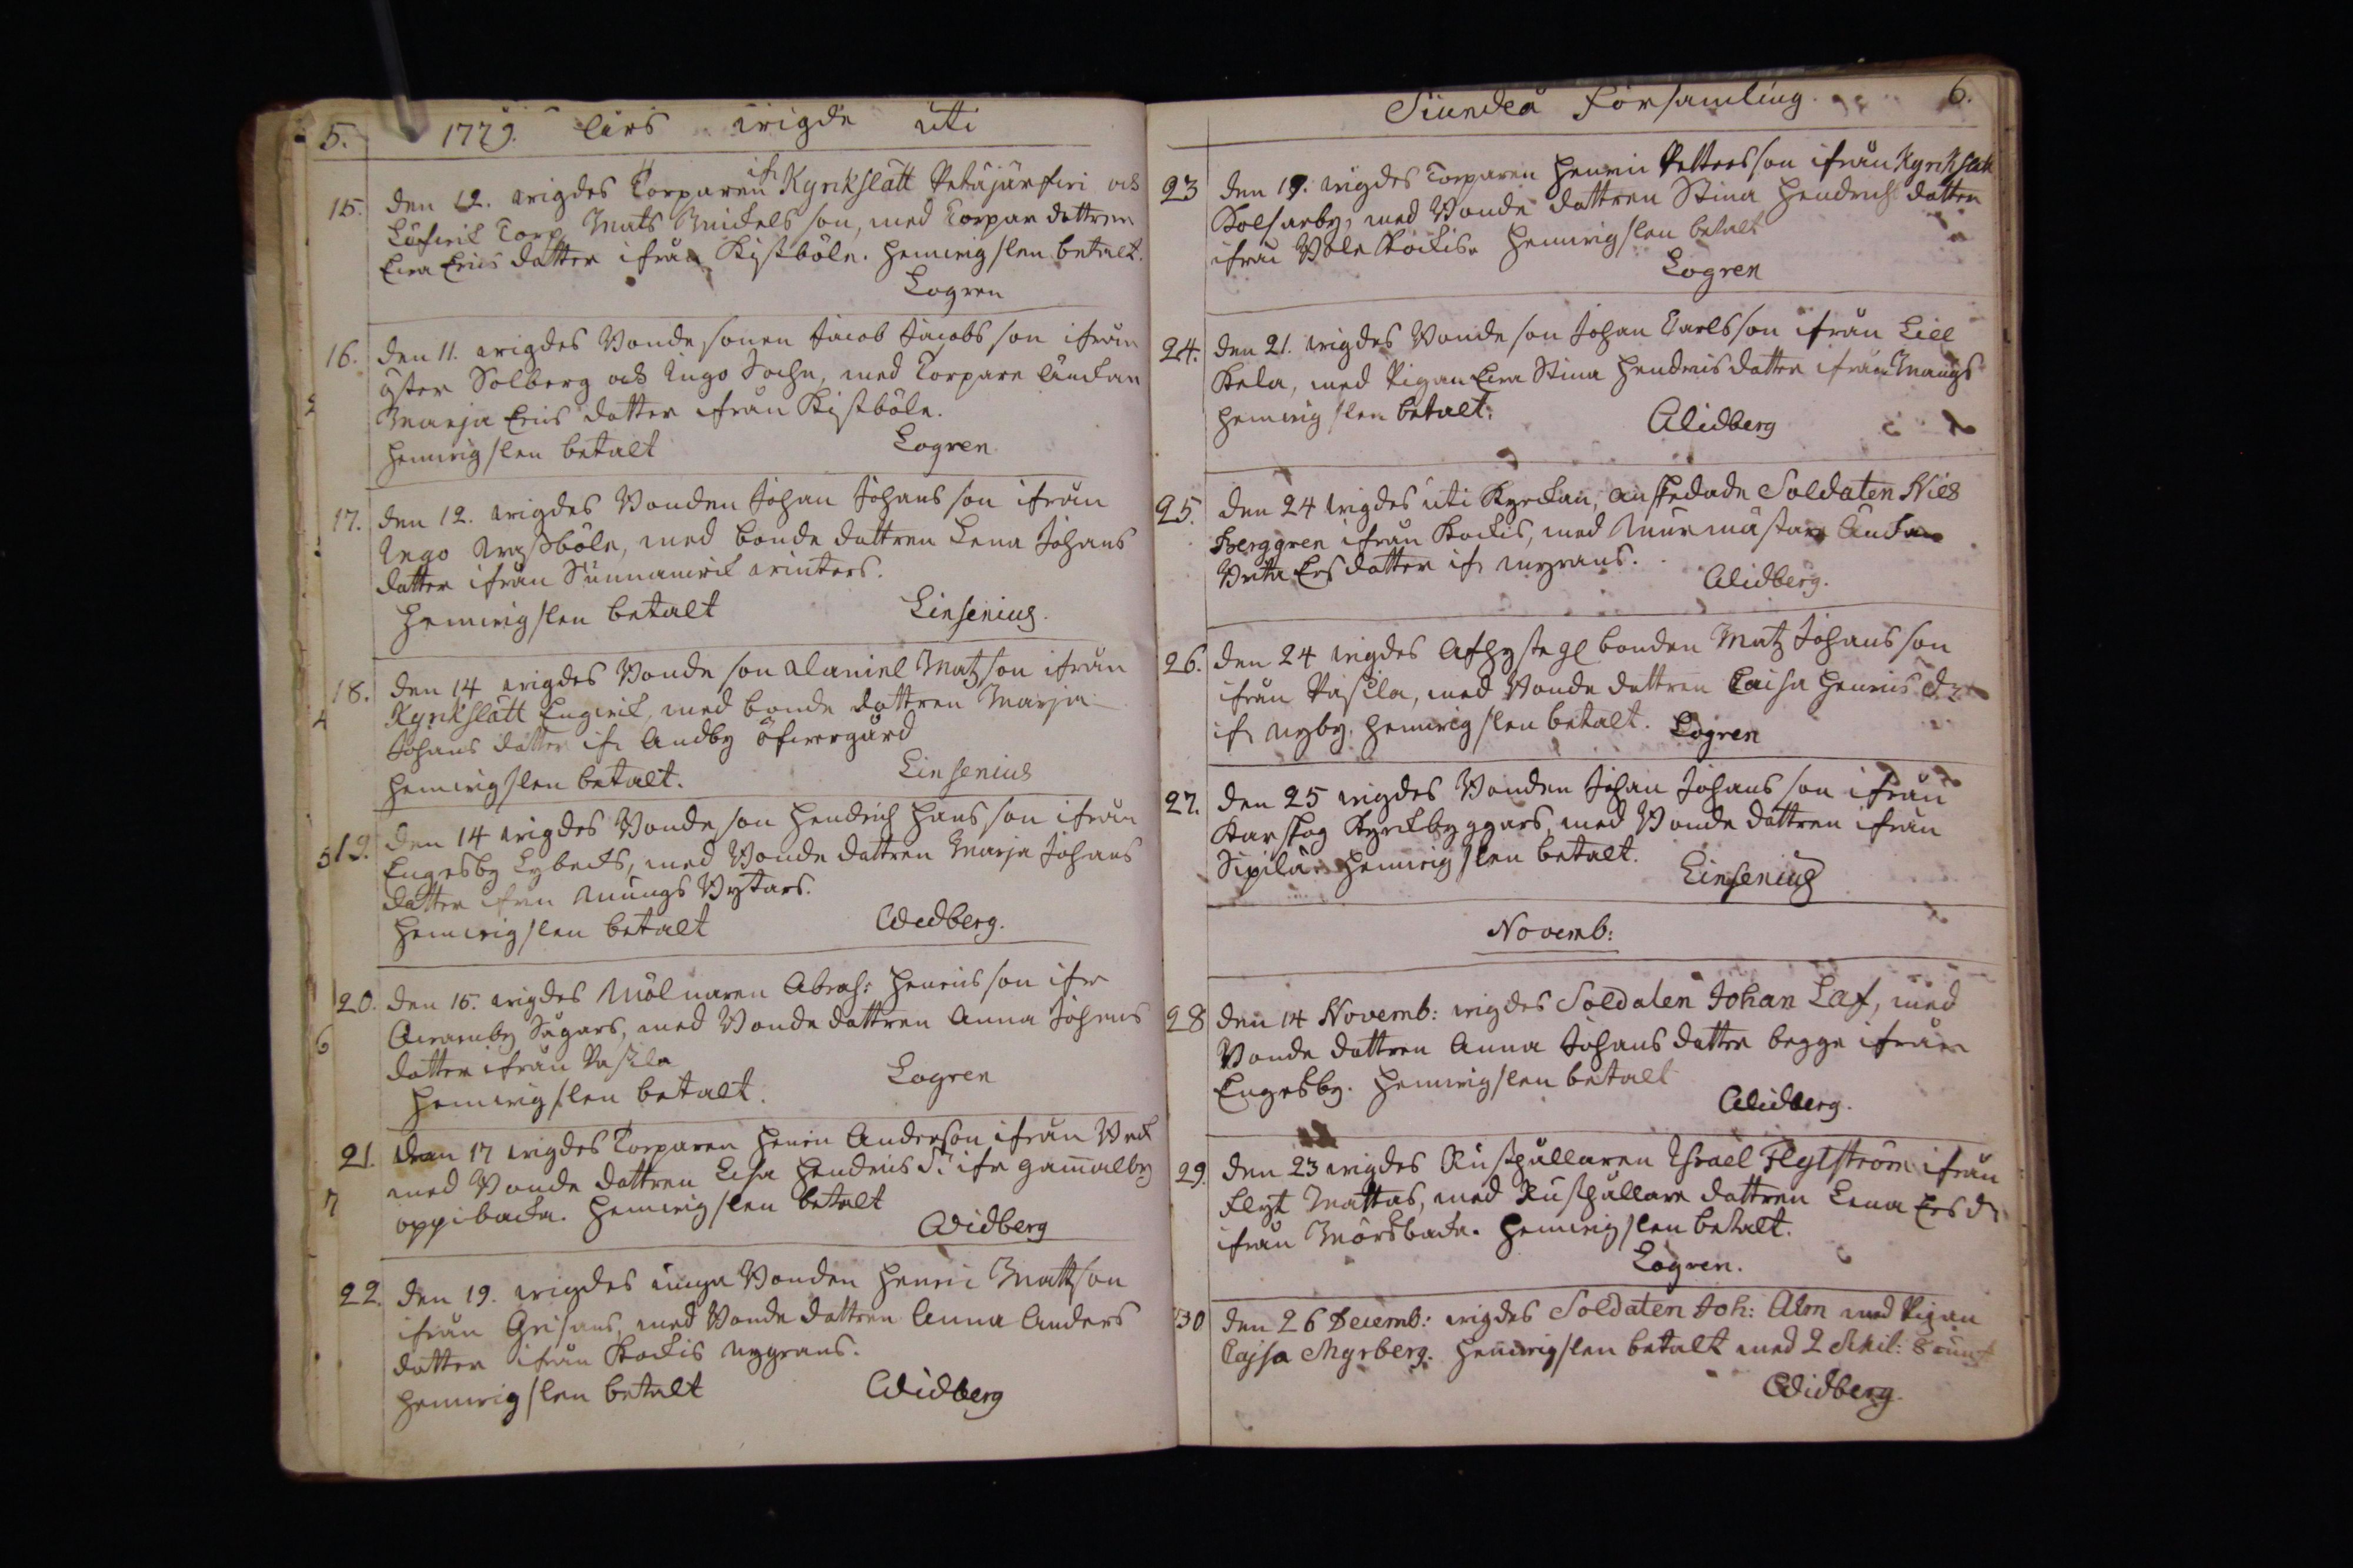 5. 1779. Års wigde uti
15. den 12. wigdes Torparen ifr Kyrkslätt Petäjärfwi och
Låfwik Torp Mats Mickelsson, med Torpar dottren
Ewa Erics dotter ifrån Kistböle. Hemwigslen betalt.
Logren
16. den 11. wigdes Bonde sonen Jacob Jacobsson ifrån
Öster Solberg och Ingo Sochn, med Torpare Änckan
Marja Erics dotter ifrån Kistböle.
Hemwigslen betalt Logren
2
17. den 12. wigdes Bonden Johan Johansson ifrån
Ingo böle, med bonde dottren Lena Johans
dotter ifrån Sunnanwik
Hemwigslen betalt Linsenius.
18. den 14 wigdes Bonde son Daniel Matzson ifrån
4 Kyrkslätt Engwik, med bonde dottren Marja
Johans dotter ifr Andby Öfwergård
Hemwigslen betalt. Linsenius
5 19. den 14 wigdes Bonde son Hendrich Hansson ifrån
Engesby Lybecks, med Bonde dottren Marja Johans
dotter ifrån Mungs Bytars.
Hemwigslen betalt Widberg.
20. den 15. wigdes Mölnaren Abrah: Henricsson ifr
6 Qwarnby Sågars, med Bonde dottren Anna Johans
dotter ifrån Pasila
Hemwigslen betalt. Logren
21. den 17 wigdes Torparen Henric Anderson ifrån Wik
7 med Bonde dottren Lisa Hendrics dr ifr Gammalby
oppibacka. Hemwigslen betalt
Widberg
22. den 19. wigdes unga Bonden Henric Mattson
ifrån Grisans, med Bonde dottren Anna Anders
dotter ifrån Kockis nygrans.
Hemwigslen betalt Widberg
Siundeå Församling. 6.
23 den 19. wigdes Torparen Henric Pettersson ifrån Kyrkslätt
Kolsarby, med Bonde dottren Stina Hendrichs dotter
ifrån Böle Kockis. Hemwigslen betalt
Logren
24. den 21. wigdes Bonde son Johan Carlsson ifrån Lill
Kela, med Pigan Ewa Stina Hendrics dotter ifrån Mangs
Hemwigslen betalt. Widberg
25. den 24 wigdes uti Kyrckan, afskedade Soldaten Nils
Berggren ifrån Kockis, med Murmästare Änckan
Brita Ers dotter ifr nygrans.
Widberg.
26. den 24 wigdes bonden Matz Johansson
ifrån Pasila, med Bonde dottren Caisa Henrics dr
ifr Nyby. Hemwigslen betalt. Logren
27. den 25 wigdes Bonden Johan Johansson ifrån
Karskog Kyrckbyggars, med Bonde dottren ifrån
Sipilä. Hemwigslen betalt.
Linsenius
Novemb:
28 den 14 Novemb: wigdes Soldaten Johan Laf, med
Bonde dottren Anna Johans dotter begge ifrån
Engesby. Hemwigslen betalt
Widberg.
29. den 23 wigdes Rusthållaren Israel Flytström ifrån
Flyt Mattas, med Rusthållare dottren Lena Ers dr
ifrån Mörsbacka. Hemwigslen betalt.
Logren.
30 den 26 Decemb: wigdes Soldaten Joh: Alm med Pigan
Cajsa Myrberg. Hemwigslen betalt med 2 Skil: 8 runst
Widberg